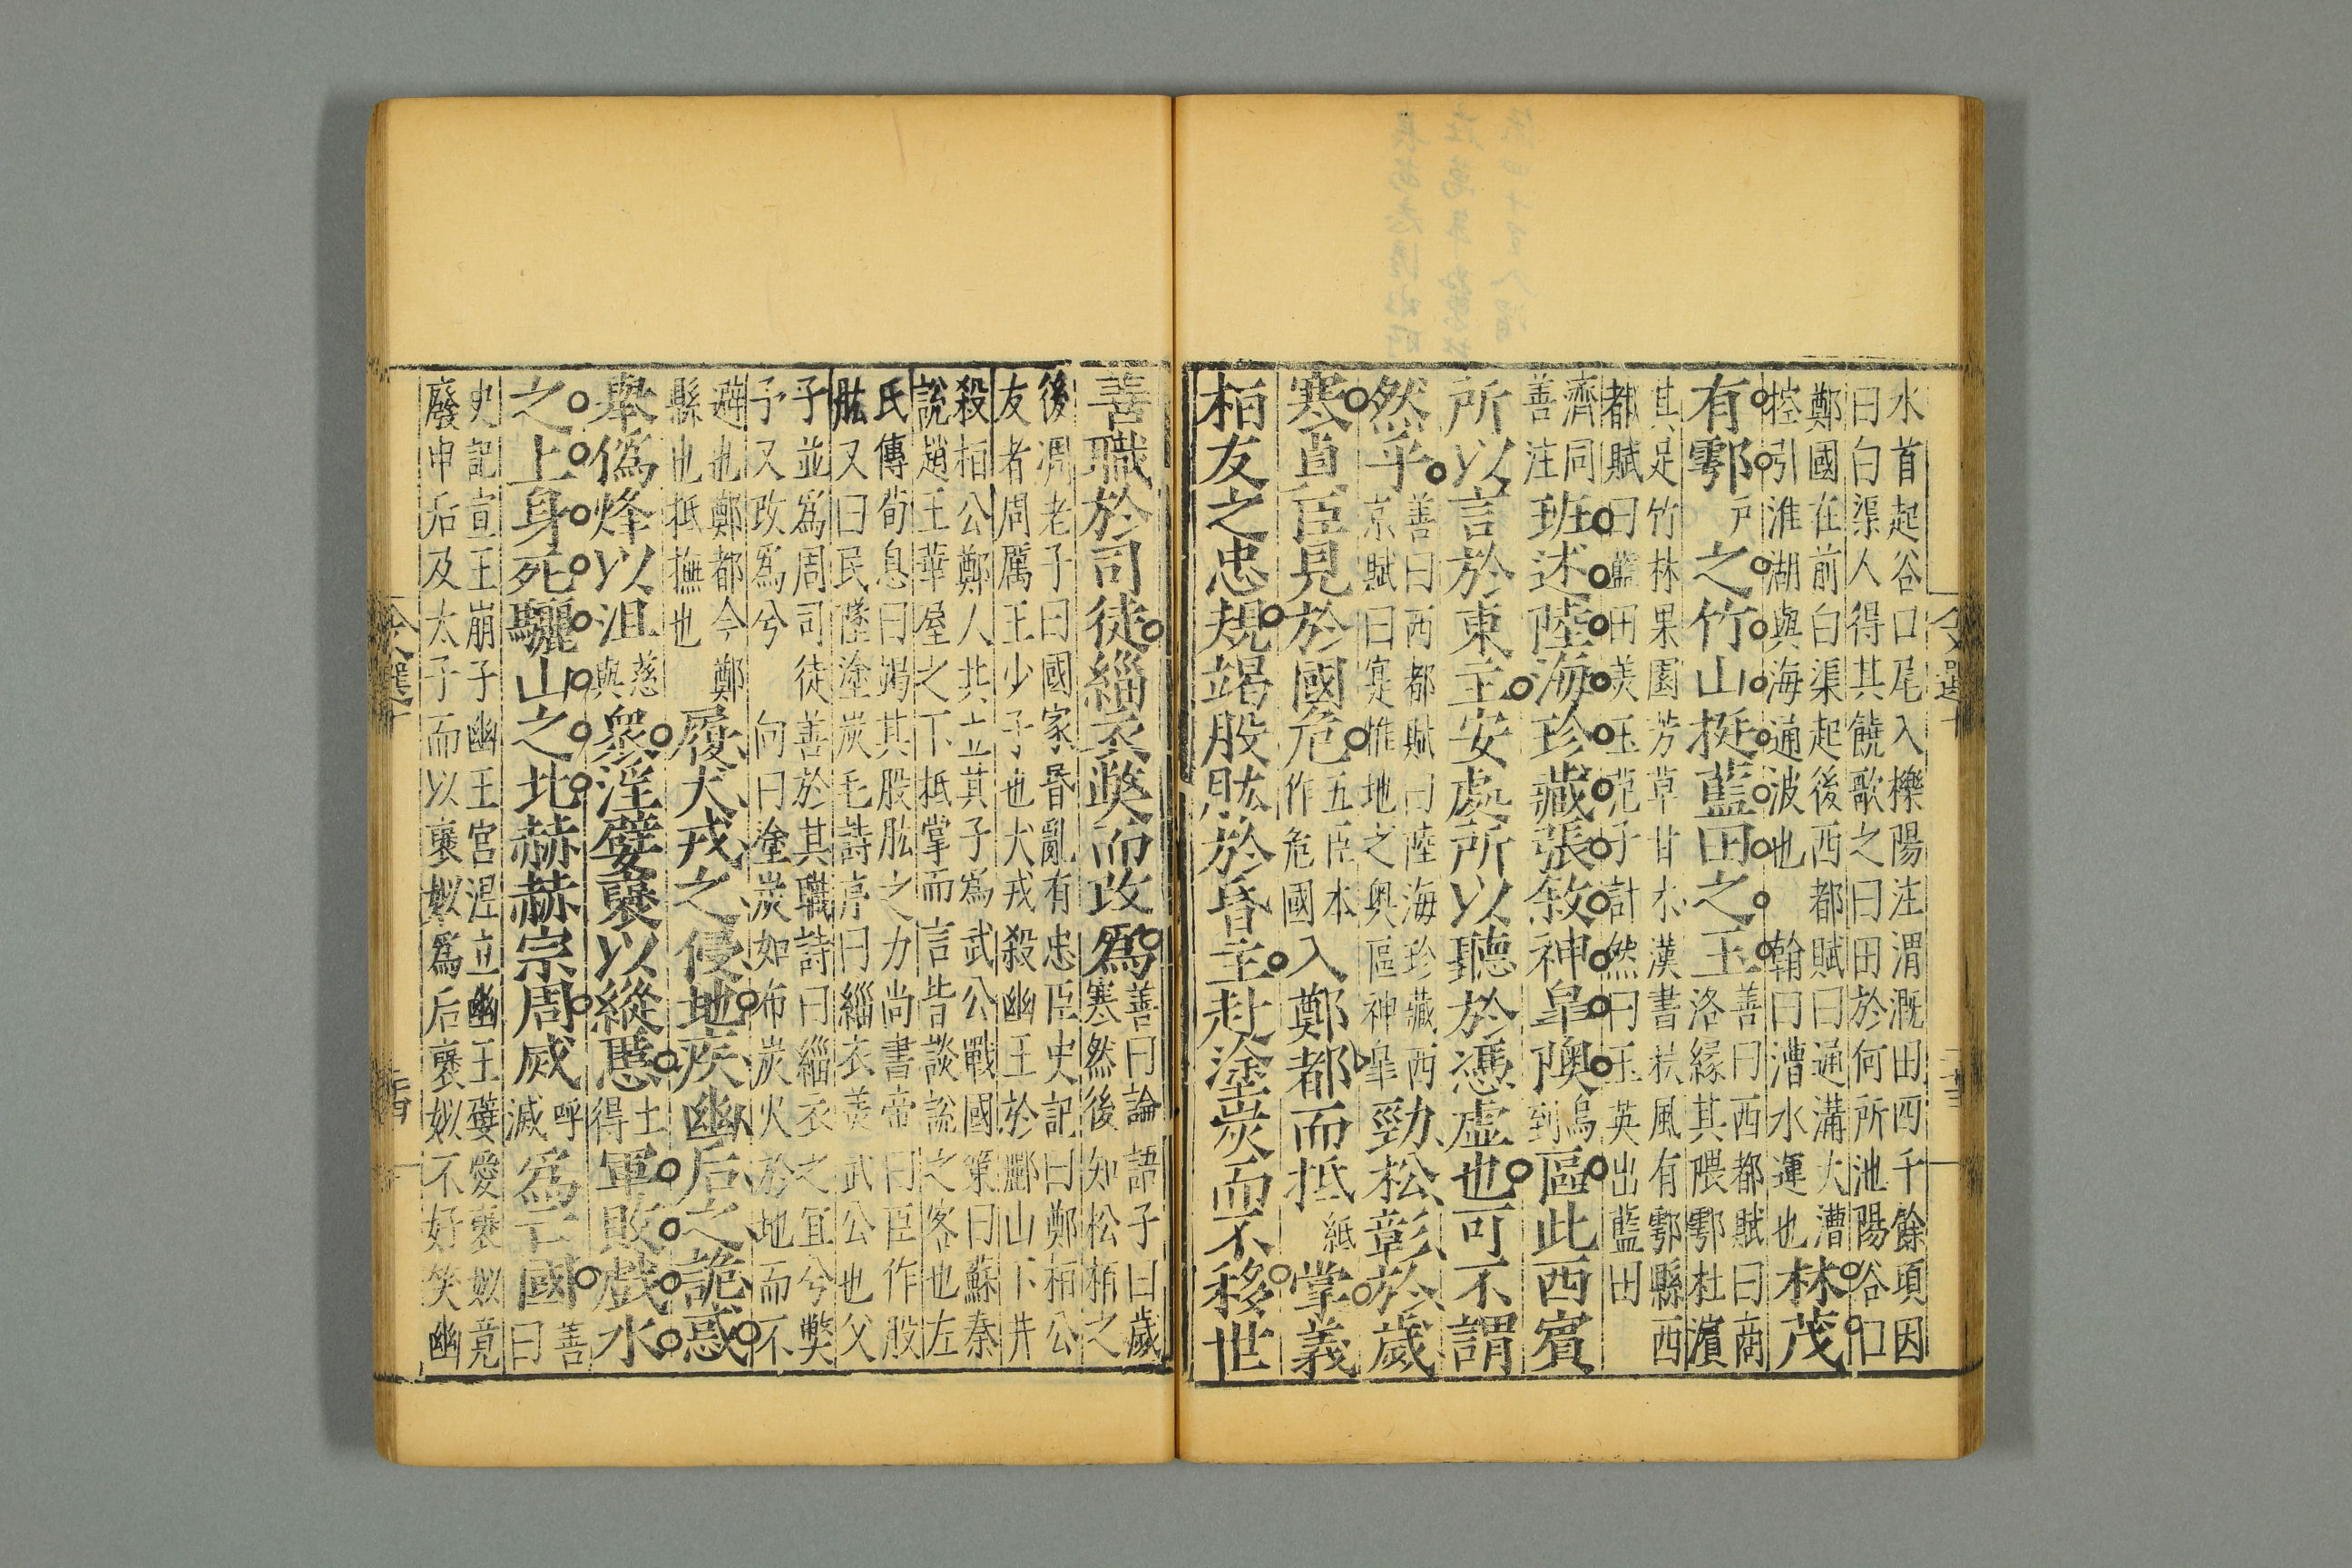 水首起谷口尾入櫟陽注渭漑田四千餘項因
曰白渠人得其饒歌之曰田於何所池陽谷口
鄭國在前白渠起後西都賦曰通溝大漕
控引淮湖與海通波也 翰曰漕水運也
林茂
有鄠戶之竹山挺藍田之玉
善曰西都賦曰商
洛緣其隈鄠杜濱
其足竹林果園芳草甘木漢書扶風有鄠縣西
都賦曰藍田美玉范子計然曰玉英出藍田
濟同
善注
班述陸海珍藏張敘神皐隩烏到區此西賓
所以言於東主安處所以聽於憑虛也可不謂
然乎
善曰西都賦曰陸海珍藏西
京賦曰寔惟地之奥區神皐
勁松彰於歲
寒貞臣見於國危
五臣本
作危國
入鄭都而抵紙掌義
栢友之忠規竭股肱於昏主赴塗炭而不移世
善職於司徒緇衣獘而改爲
善曰論語子曰歲
寒然後知松栢之
後凋老子曰國家昬亂有忠臣史記曰鄭栢公
友者周厲王少子也犬戎殺幽王於酈山下并
殺栢公鄭人共立其子爲武公戰國策曰蘇秦
說趙王華屋之下抵掌而言皆談說之客也左
氏傳荀息曰竭其股肱之力尚書帝曰臣作股
肱又曰民墜塗炭毛詩序曰緇衣美武公也父
子並爲周司徒善於其職詩曰緇衣之宜兮獘
予又改爲兮 向曰塗炭如布炭火於地而不
避也鄭都今鄭
縣也抵撫也
履犬戎之侵地疾幽后之詭惑
舉僞烽以沮慈與衆淫嬖褒以縱慝土得軍敗戲水
之上身死驪山之北赫赫宗周烕呼滅爲亡國
善
曰
史記宣王崩子幽王宮湼立幽王嬖愛褒姒竟
廢申后及太子而以褒姒爲后褒姒不好笑幽